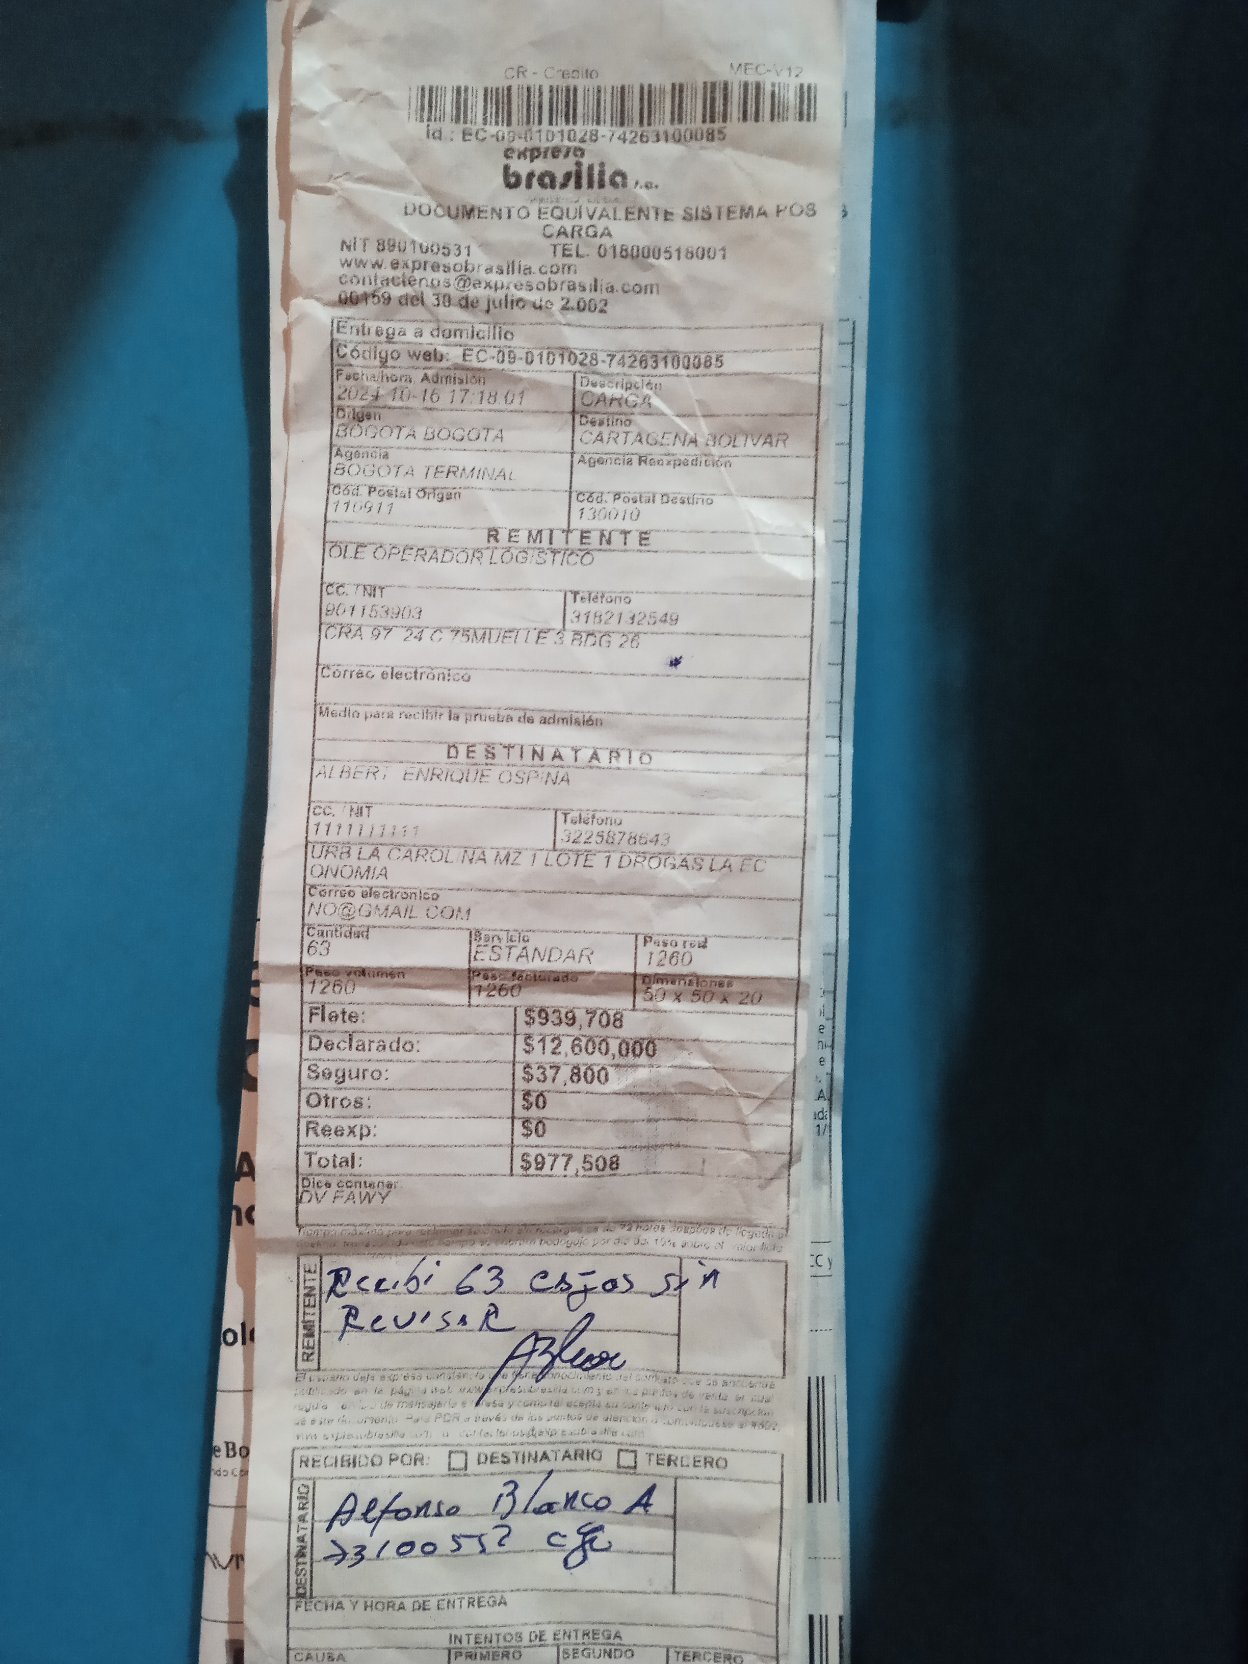 CR - Crédito MEC-V12
Id.: EC-09-0101028-74263100085
expreso
brasilia s.a.
DOCUMENTO EQUIVALENTE SISTEMA POS
CARGA
NIT 890100531 TEL. 018000518001
www.expresobrasilia.com
contactenos@expresobrasilia.com
00159 del 30 de julio de 2.002
Entrega a domicilio
Código web: EC-09-0101028-74263100085
Fecha/hora Admisión Descripción
2024-10-16 17:18:01 CARGA
Origen Destino
BOGOTA BOGOTA CARTAGENA BOLIVAR
Agencia Agencia Reexpedición
BOGOTA TERMINAL
Cód. Postal Origen Cód. Postal Destino
110911 130010
REMITENTE
OLE OPERADOR LOGISTICO
CC. / NIT Teléfono
901153903 3182132549
CRA 97 24 C 75MUELLE 3 BDG 26
Correo electrónico
Medio para recibir la prueba de admisión
DESTINATARIO
ALBERT ENRIQUE OSPINA
CC. / NIT Teléfono
1111111111 3225878643
URB LA CAROLINA MZ 1 LOTE 1 DROGAS LA EC
ONOMIA
Correo electrónico
NO@GMAIL.COM
Cantidad Servicio Peso real
63 ESTANDAR 1260
Peso volumen Peso facturado Dimensiones
1260 1260 50 x 50 x 20
Flete: $939,708
Declarado: $12,600,000
Seguro: $37,800
Otros: $0
Reexp: $0
Total: $977,508
Dice contener:
DV FAWY
REMITENTE
Recibi 63 cajas sin
Revisar
RECIBIDO POR: DESTINATARIO TERCERO
DESTINATARIO
Alfonso Blanco A
73100552 cge
FECHA Y HORA DE ENTREGA
INTENTOS DE ENTREGA
CAUSA PRIMERO SEGUNDO TERCERO